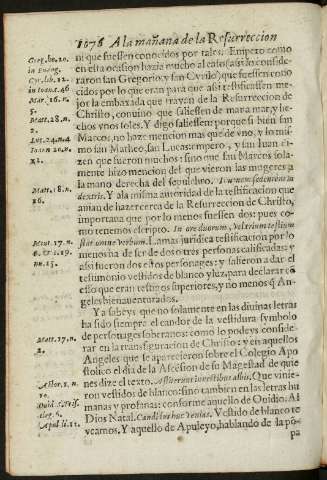 1076 A la mañana de la Resurreccion
ni que fuessen conocidos por tales. Empero como
en esta ocasion hazia mucho al caso (assi lo conside-
raron san Gregorio, y san Cyrilo) que fuessen cono
cidos por lo que eran para que assi testificassen me-
jor la embaxada que trayan de la Resurreccion de
Christo, convino que saliessen de maña mar, y he-
chos vnos soles. Y digo saliessen: porque si bien san
Marcos, no haze mencion mas que de vno, y lo mis-
mo san Matheo, san Lucas empero, y san Iuan di-
zen que fueron muchos: sino que san Marcos sola-
mente hizo mencion del que vieron las mugeres a
la mano derecha del sepulchro. Iuuenem sedentem in
dextris. Y a la misma autoridad de la testificacion que
auian de hazer cerca de la Resurreccion de Christo,
importaua que por lo menos fuessen dos: pues co-
mo tenemos escripto. In ore duorum, vel trium testium
stat omne verbum. La mas juridica testificacion por lo
menos ha de ser de dos o tres personas calificadas: y
assi fueron dos estos personages: y salieron a dar el
testimonio vestidos de blanco y luz, para declarar cō
esso que eran testigos superiores, y no menos q̃ An-
geles bienauenturados.
Y a sabeys que no solamente en las diuinas letras
ha sido siempre el candor de la vestidura symbolo
de personages soberanos: como lo podeys conside-
rar en la transfiguracion de Christo: y en aquellos
Angeles que se aparecieron sobre el Colegio Apo
stolico el dia de la Ascesion de su Magestad de quie
nes dize el texto. Astiterunt in vestibus albis. Que vinie-
ron vestidos de blanco: sino tambien en las letras hu
manas y profanas: conforme aquello de Ouidio: Al
Dios Natal. Candidus huc venias. Vestido de blanco te
veamos. Y aquello de Apuleyo, hablando de la po-
pa
Greg. ho. 20.
in Euang.
Cyr. lib. 12.
in Ioan. c. 46
Mar. 16. n.
5.
Matt. 28. n.
2.
Luc. 24. n. 4
Ioan. 20. n.
12.
Matt. 18. n.
16.
Matt. 17. n.
2.
Actor. 1. n.
10.
Apul. li. 11.